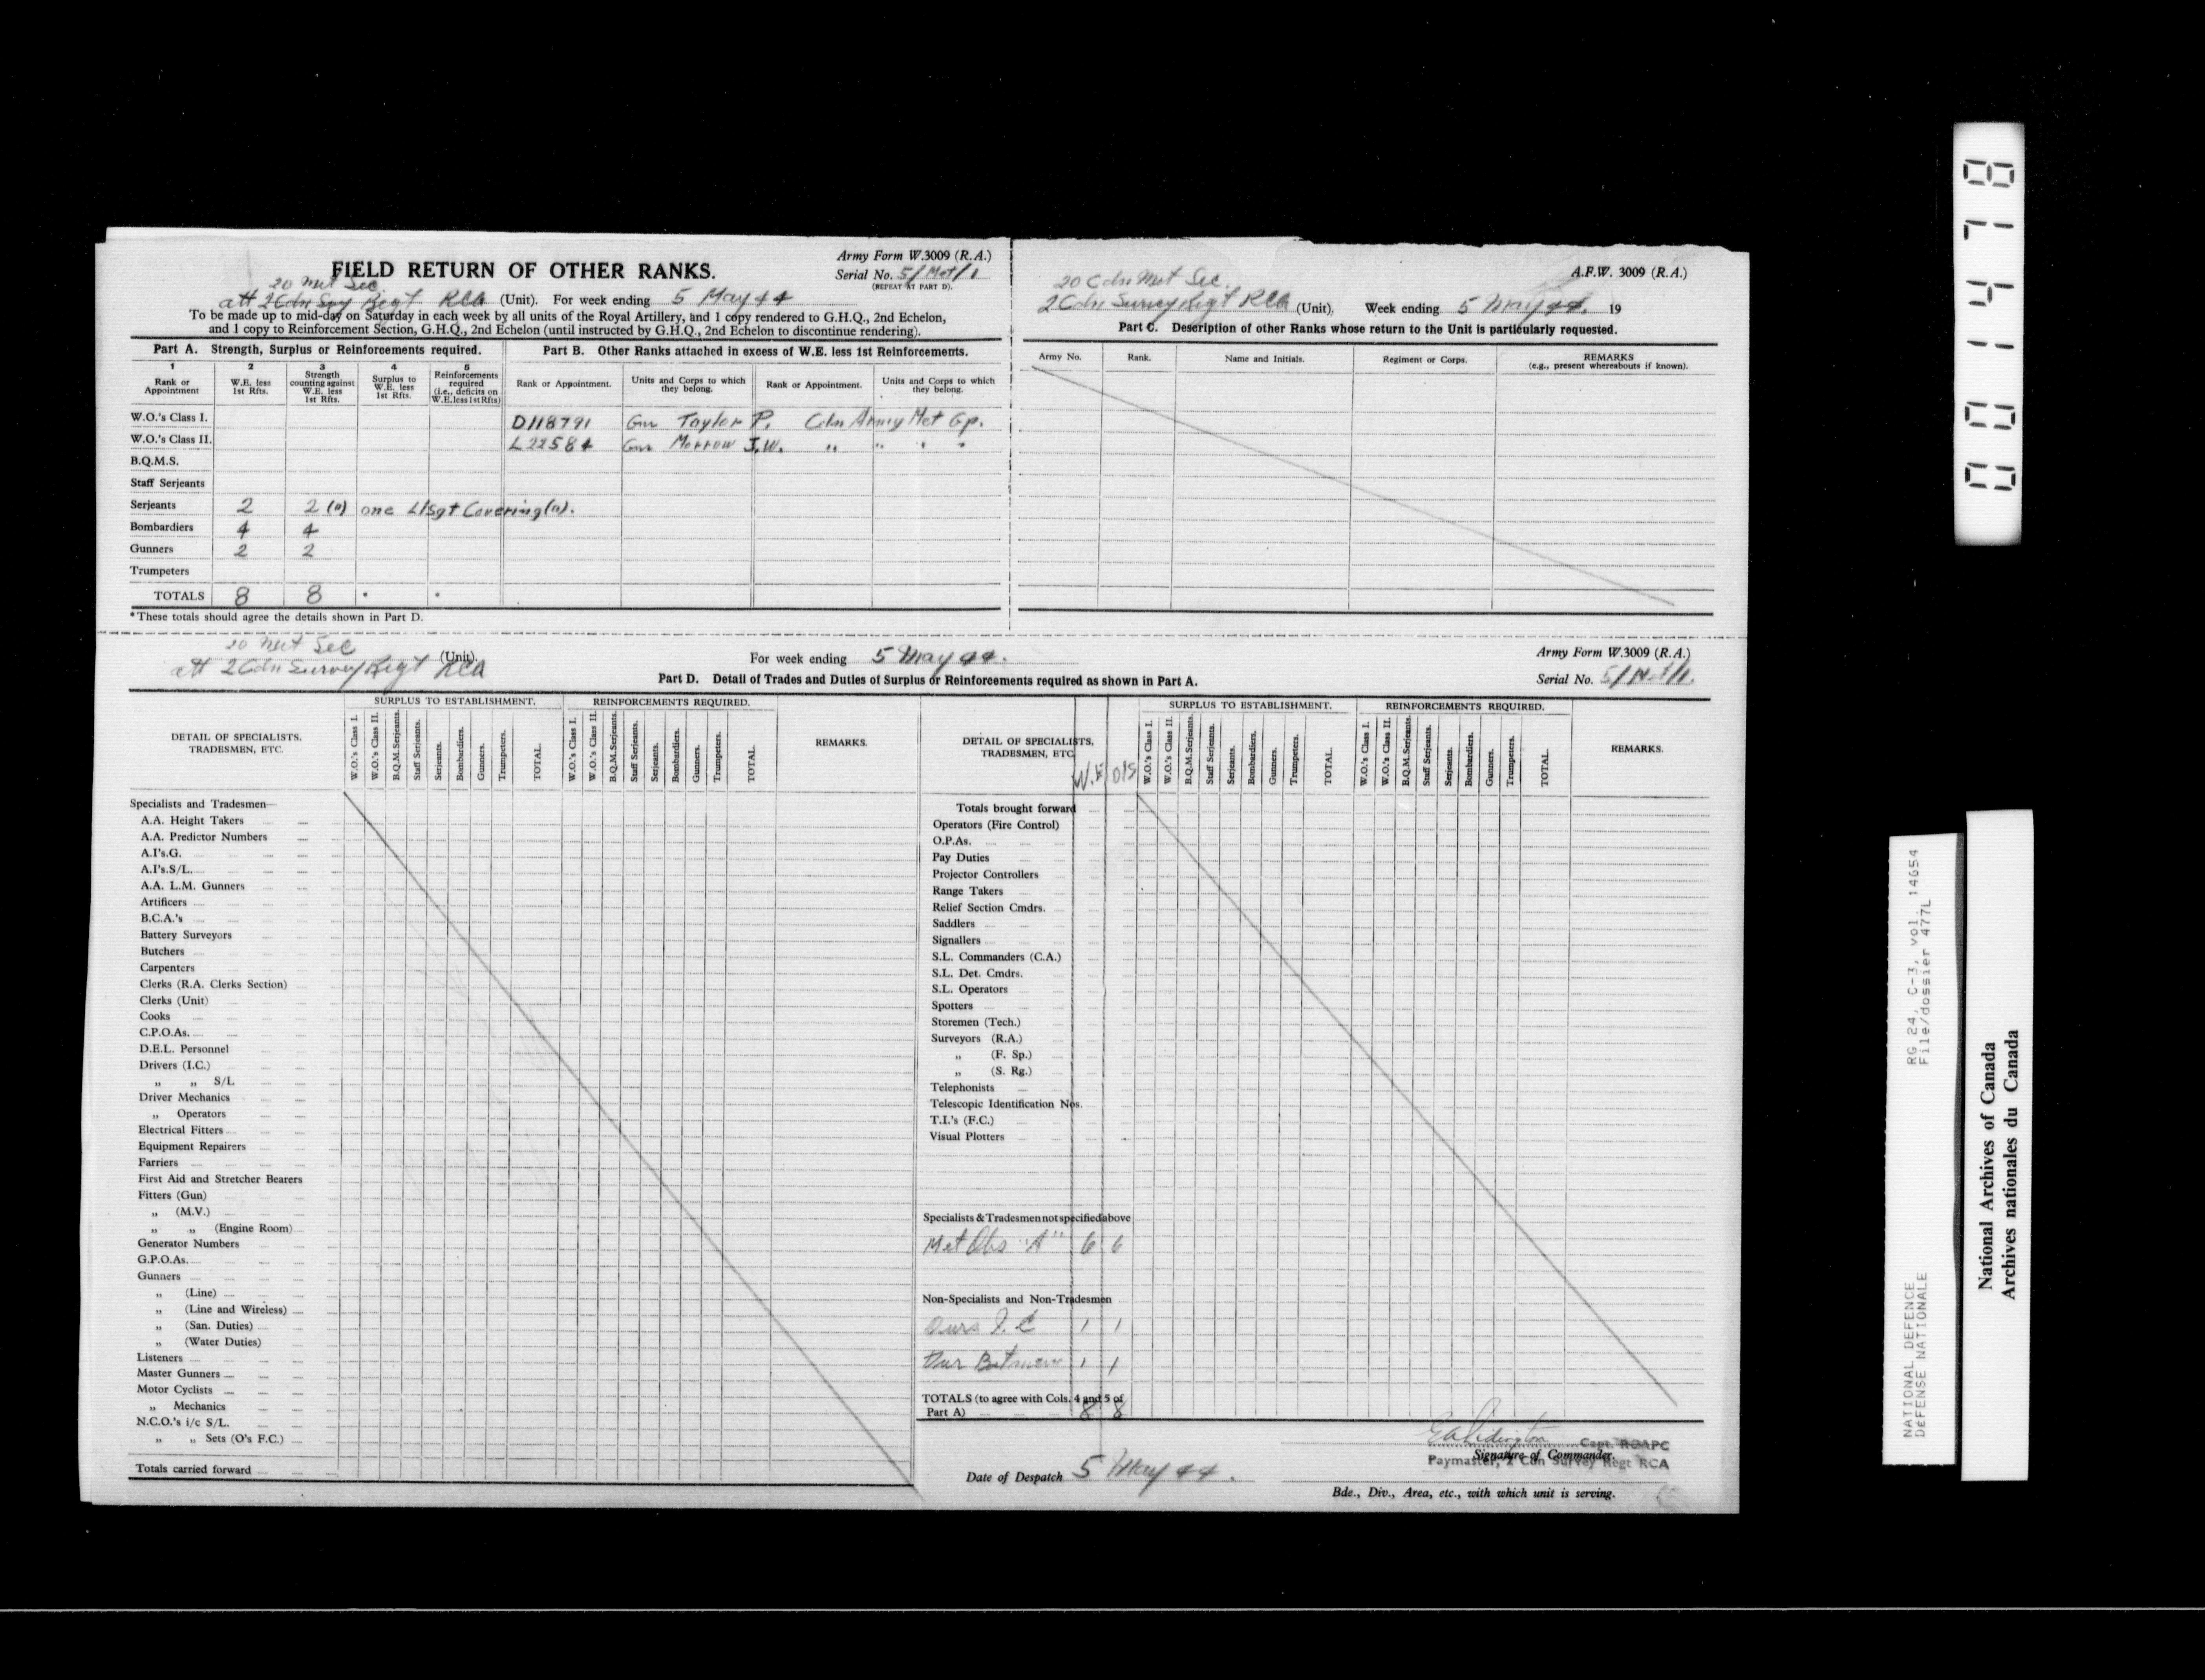 Army Form W.3009 (R.A.)
FIELD RETURN OF OTHER RANKS.
Serial No. 5/Met/1
(REPEAT AT PART D).
20 Met Sec
att 2 Cdn Svy Regt RCA (Unit). For week ending 5 May 44
To be made up to mid-day on Saturday in each week by all units of the Royal Artillery, and 1 copy rendered to G.H.Q., 2nd Echelon,
and 1 copy to Reinforcement Section, G.H.Q., 2nd Echelon (until instructed by G.H.Q., 2nd Echelon to discontinue rendering).
Part A. Strength, Surplus or Reinforcements required.
1 Rank or Appointment
2 W.E. less 1st Rfts.
3 Strength counting against W.E. less 1st Rfts.
4 Surplus to W.E. less 1st Rfts.
5 Reinforcements required (i.e., deficits on W.E. less 1st Rfts)
W.O.'s Class I.
W.O.'s Class II.
B.Q.M.S.
Staff Serjeants
Serjeants 2 2 (a) one L/Sgt Covering (a).
Bombardiers 4 4
Gunners 2 2
Trumpeters
TOTALS 8 8 * *
*These totals should agree the details shown in Part D.
Part B. Other Ranks attached in excess of W.E. less 1st Reinforcements.
Rank or Appointment. Units and Corps to which they belong. Rank or Appointment. Units and Corps to which they belong.
D118791 Gnr Taylor P. Cdn Army Met Gp.
L22584 Gnr Morrow J.W. " " " "
A.F.W. 3009 (R.A.)
20 Cdn Met Sec.
2 Cdn Survey Regt RCA (Unit). Week ending 5 May 44. 19
Part C. Description of other Ranks whose return to the Unit is particularly requested.
Army No. Rank. Name and Initials. Regiment or Corps. REMARKS
(e.g., present whereabouts if known).
20 Met Sec
att 2 Cdn Survey Regt RCA (Unit). For week ending 5 May 44.
Army Form W.3009 (R.A.)
Part D. Detail of Trades and Duties of Surplus or Reinforcements required as shown in Part A.
Serial No. 5/Met/1.
DETAIL OF SPECIALISTS, TRADESMEN, ETC.
SURPLUS TO ESTABLISHMENT.
W.O.'s Class I. W.O.'s Class II. B.Q.M.Serjeants. Staff Serjeants. Serjeants. Bombardiers. Gunners. Trumpeters. TOTAL.
REINFORCEMENTS REQUIRED.
W.O.'s Class I. W.O.'s Class II. B.Q.M.Serjeants. Staff Serjeants. Serjeants. Bombardiers. Gunners. Trumpeters. TOTAL.
REMARKS.
Specialists and Tradesmen—
A.A. Height Takers
A.A. Predictor Numbers
A.I's.G.
A.I's.S/L.
A.A. L.M. Gunners
Artificers
B.C.A.'s
Battery Surveyors
Butchers
Carpenters
Clerks (R.A. Clerks Section)
Clerks (Unit)
Cooks
C.P.O.As.
D.E.L. Personnel
Drivers (I.C.)
,, ,, S/L
Driver Mechanics
,, Operators
Electrical Fitters
Equipment Repairers
Farriers
First Aid and Stretcher Bearers
Fitters (Gun)
,, (M.V.)
,, ,, (Engine Room)
Generator Numbers
G.P.O.As.
Gunners
,, (Line)
,, (Line and Wireless)
,, (San. Duties)
,, (Water Duties)
Listeners
Master Gunners
Motor Cyclists
,, Mechanics
N.C.O.'s i/c S/L.
,, ,, Sets (O's F.C.)
Totals carried forward
DETAIL OF SPECIALISTS, TRADESMEN, ETC.
W.E O/S
SURPLUS TO ESTABLISHMENT.
W.O.'s Class I. W.O.'s Class II. B.Q.M.Serjeants. Staff Serjeants. Serjeants. Bombardiers. Gunners. Trumpeters. TOTAL.
REINFORCEMENTS REQUIRED.
W.O.'s Class I. W.O.'s Class II. B.Q.M.Serjeants. Staff Serjeants. Serjeants. Bombardiers. Gunners. Trumpeters. TOTAL.
REMARKS.
Totals brought forward
Operators (Fire Control)
O.P.As.
Pay Duties
Projector Controllers
Range Takers
Relief Section Cmdrs.
Saddlers
Signallers
S.L. Commanders (C.A.)
S.L. Det. Cmdrs.
S.L. Operators
Spotters
Storemen (Tech.)
Surveyors (R.A.)
,, (F. Sp.)
,, (S. Rg.)
Telephonists
Telescopic Identification Nos.
T.I.'s (F.C.)
Visual Plotters
Specialists & Tradesmen not specified above
Met Obs "A" 6 6
Non-Specialists and Non-Tradesmen
Dvrs I.C 1 1
Dvr Batmen 1 1
TOTALS (to agree with Cols. 4 and 5 of
Part A) 8 8
Capt. RCAPC
Signature of Commander.
Paymaster, 2 Cdn Survey Regt RCA
Date of Despatch 5 May 44.
Bde., Div., Area, etc., with which unit is serving.
001478
NATIONAL DEFENCE RG 24, C-3, vol. 14654
DÉFENSE NATIONALE File/dossier 477L
National Archives of Canada
Archives nationales du Canada